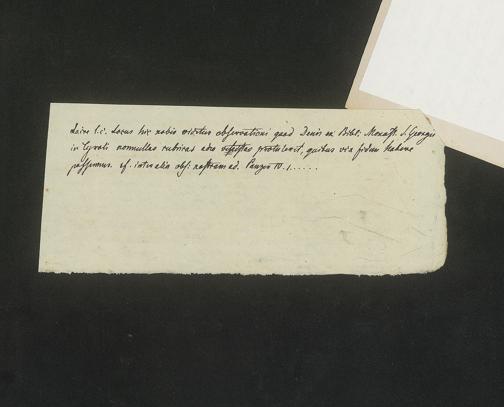 Laire l.c. Locus hic nobis videtur observationi quod Denis ex Bibl. Monast. S. Georgii
in Tyroli nonnullas rubricas adeo vetustas protulerit, quibus vix fidem habere
possumus. cf. inter alia obs. nostram ad. Panzer IV. 1.....